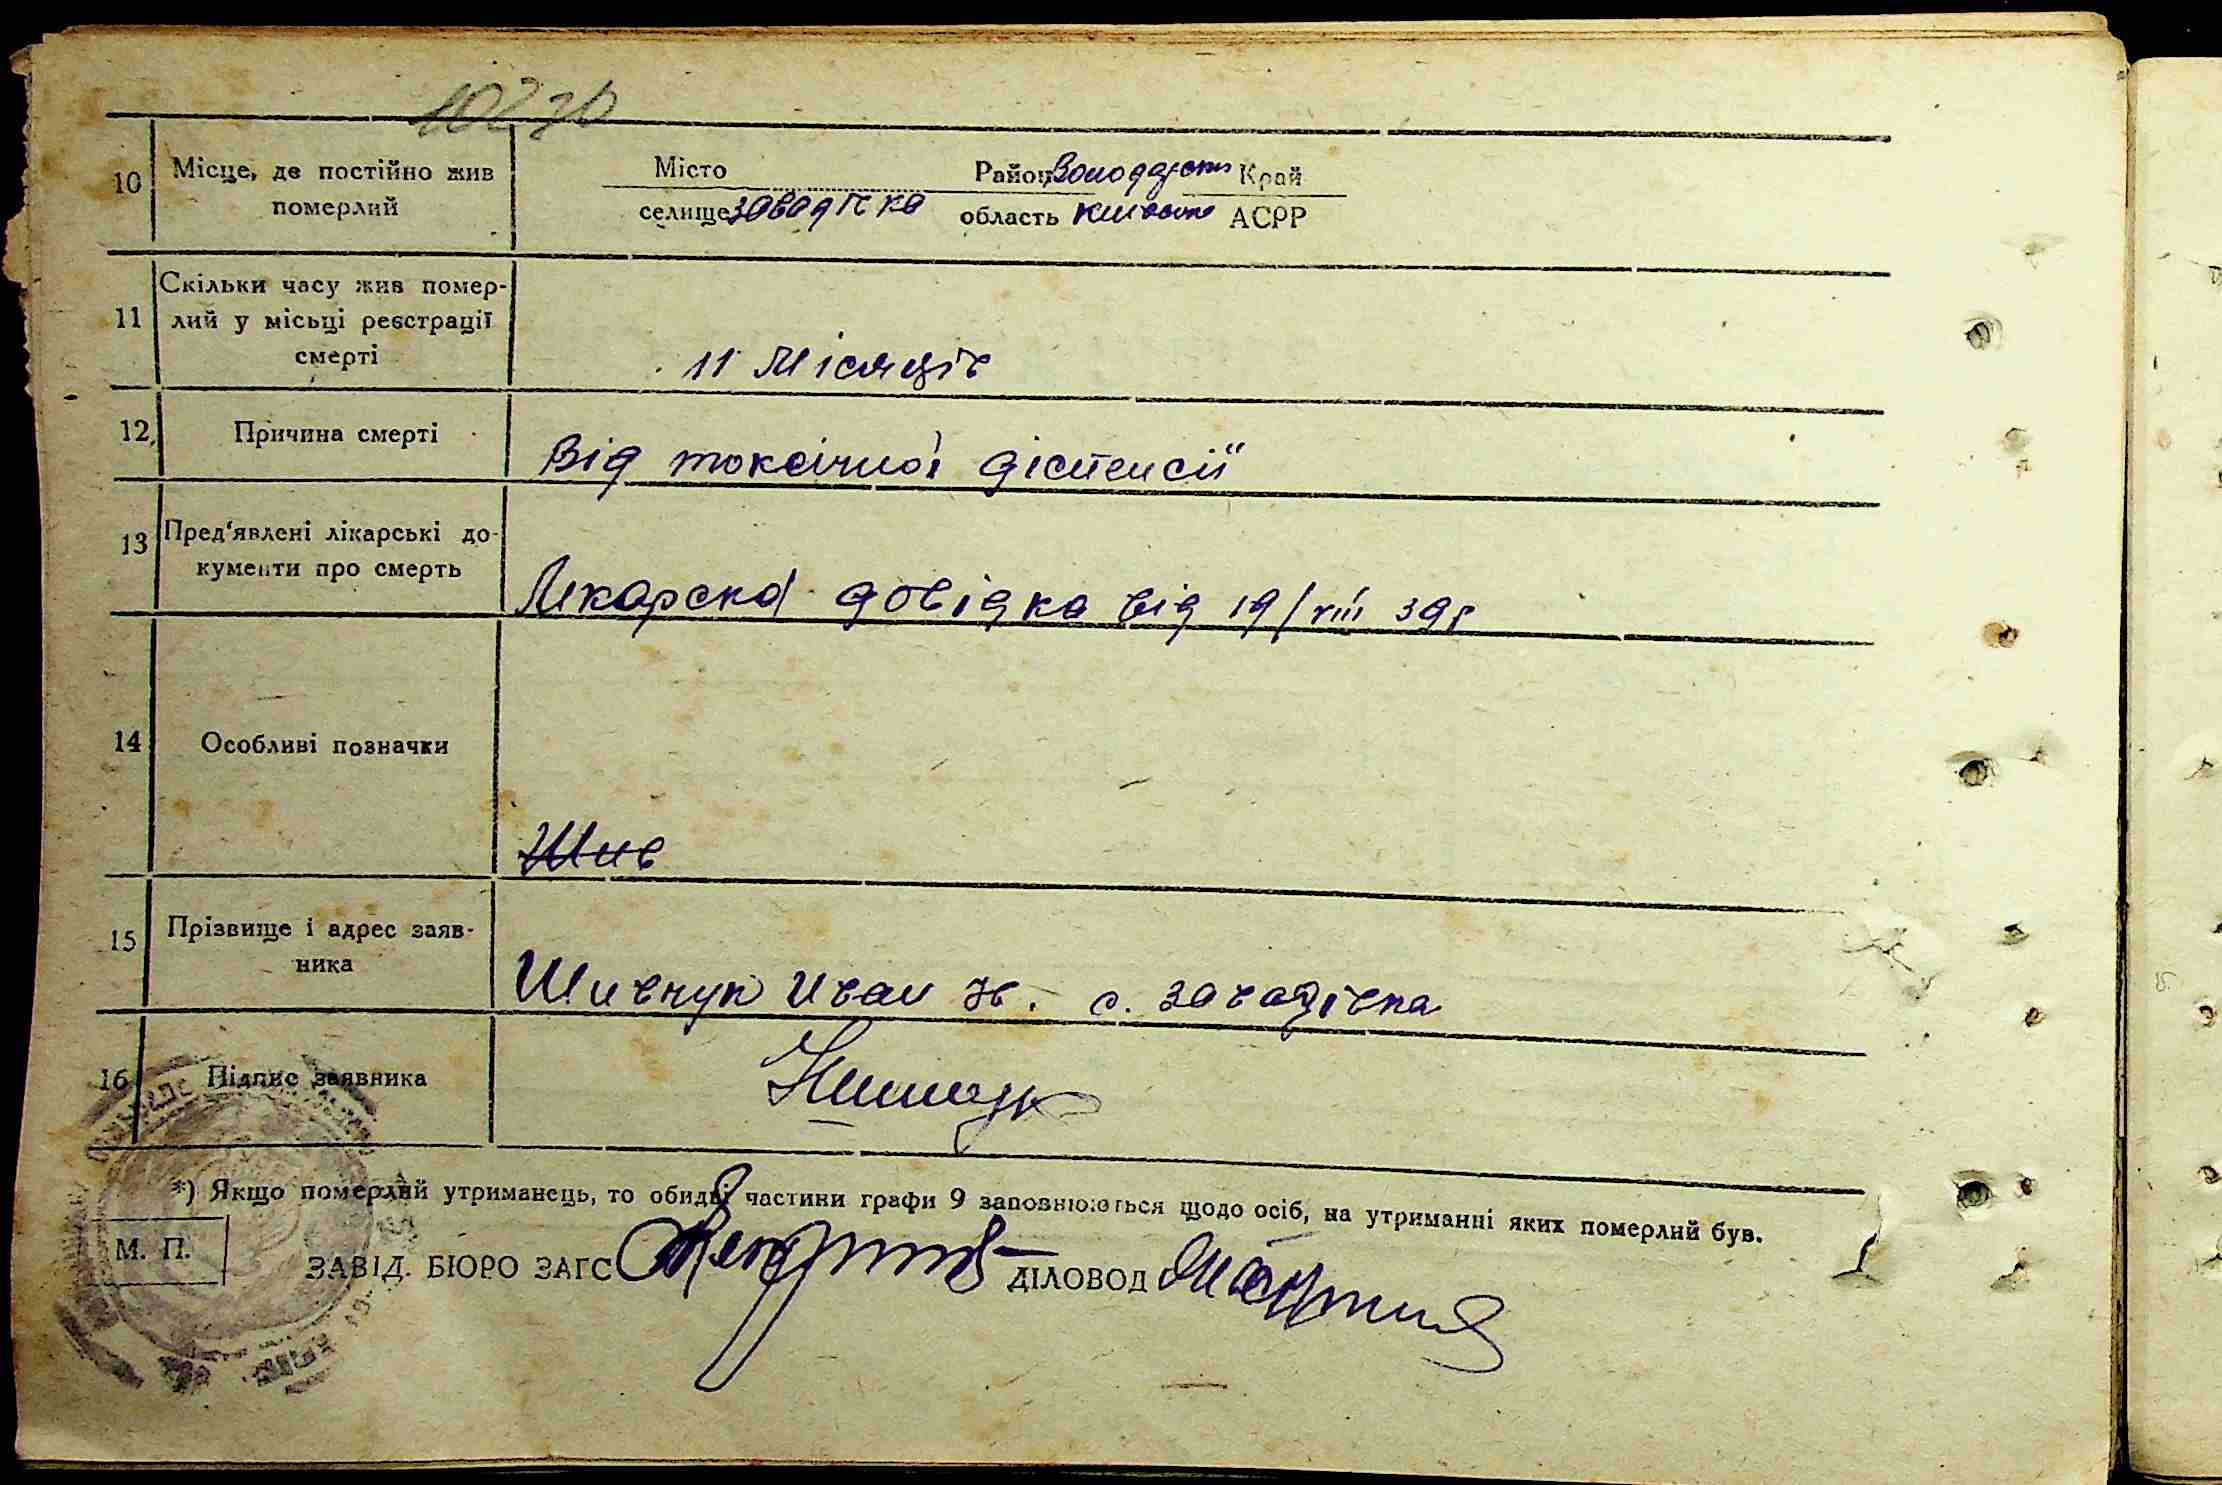 10
Місце, де постійно жив
померлий
Місто
Район Володарськ Край
селище Завадівка область Київська АСРР
11
Скільки часу жив помер-
лий у місьці реєстрації
смерті
11 Місяців
12
Причина смерті
Від токсічної діспенсії
13
Пред'явлені лікарські до-
кументи про смерть
Лікарска довідка від 19/VIII 39р
14
Особливі позначки
15
Прізвище і адрес заяв-
ника
Шивчук Иван Ів. с. Завадівка
16
Підпис заявника
*) Якщо померлий утриманець, то обидві частини графи 9 заповнюються щодо осіб, на утриманні яких померлий був.
М. П.
ЗАВІД. БЮРО ЗАГС
ДІЛОВОД